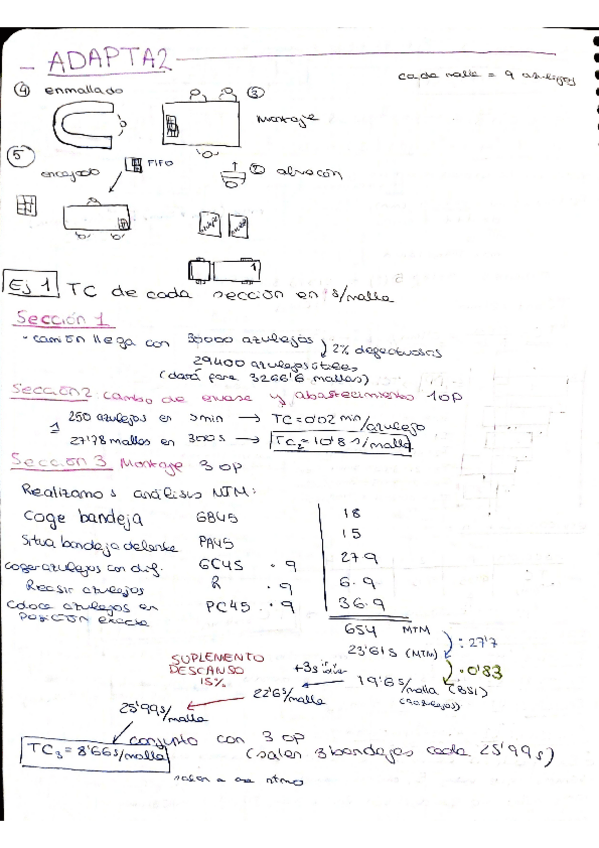 ADAPTA2
cada malla = 9 azulejos
④ enmallado
③
Montaje
⑤
encajado
FIFO
② almacén
1
Ej 1 TC de cada sección en s/malla
Sección 1
- camión llega con 30000 azulejos
2% defectuosos
29400 azulejos útiles
(dará para 3266'6 mallas)
Sección 2 cambio de envase y abastecimiento 1 op
250 azulejos en 5 min → TC = 0'02 min/azulejo
27'78 mallas en 300 s → TC2 = 10'8 s/malla
Sección 3 Montaje 3 op
Realizamos análisis MTM:
Coge bandeja GB45 18
Situa bandeja delante PA45 15
coger azulejos con dif. GC45 · 9 27·9
R · 9 6·9
Coloca azulejos en PC45 · 9 36·9
posición exacta
654 MTM
: 27'7
23'61 s (MTM)
· 0'83
19'6 s/malla (BSI)
(9 azulejos)
+3s
22'6 s/malla
SUPLEMENTO
DESCANSO
15%
25'99 s/malla
conjunto con 3 op
TC3 = 8'66 s/malla
(salen 3 bandejas cada 25'99 s)
salen a ese ritmo